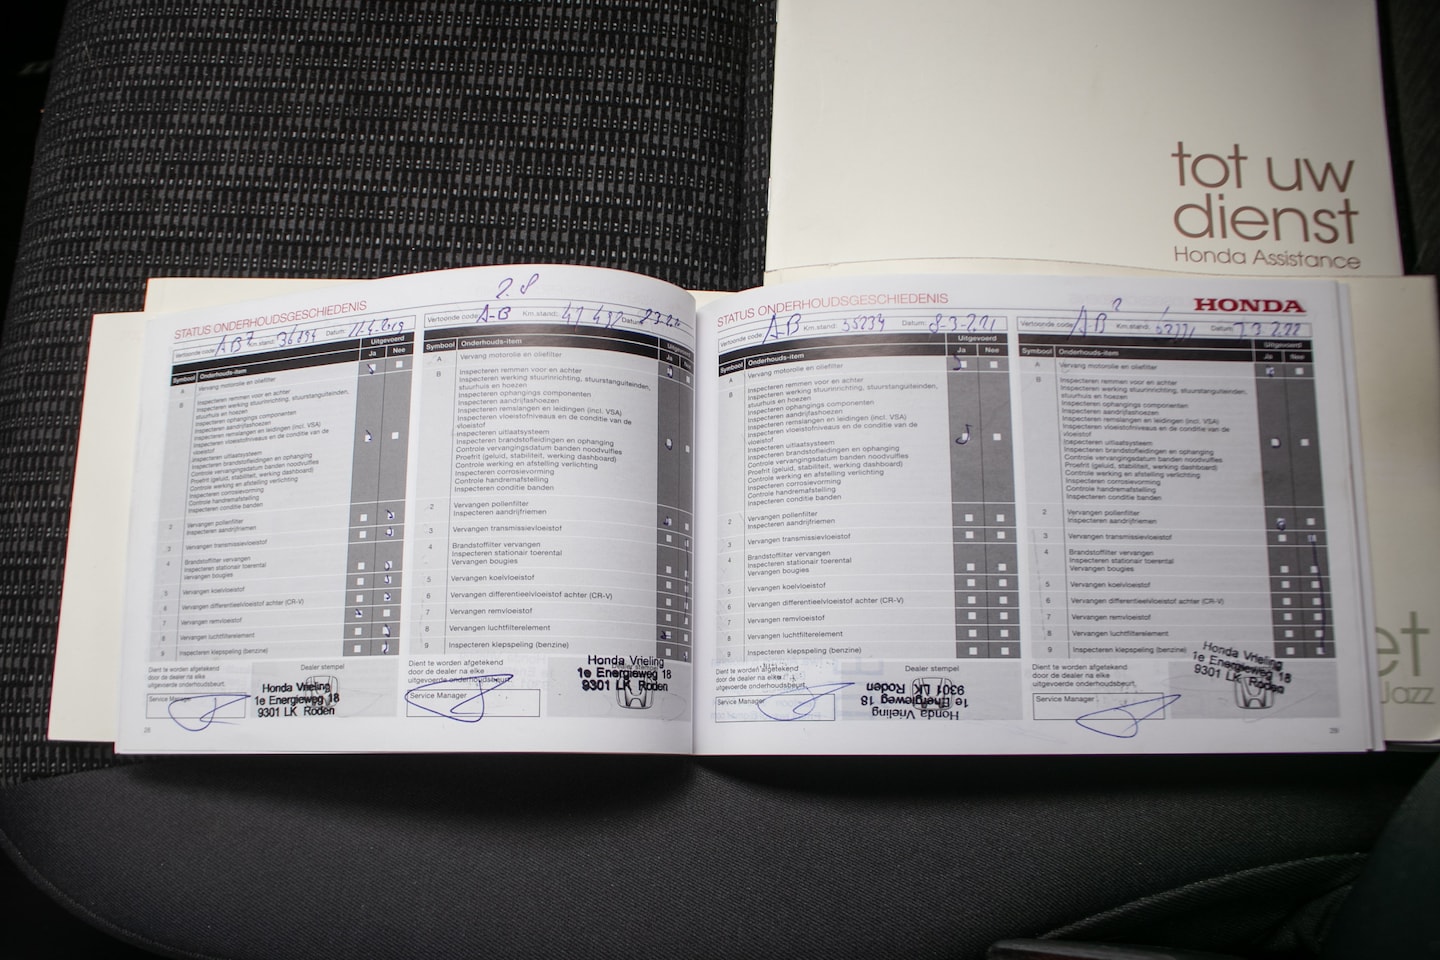 tot uw
dienst
Honda Assistance
et
Jazz
STATUS ONDERHOUDSGESCHIEDENIS
Vertoonde code: AB Km.stand: Datum:
Symbool Onderhouds-item Uitgevoerd
Ja Nee
A Vervang motorolie en oliefilter
B Inspecteren remmen voor en achter
Inspecteren werking stuurinrichting, stuurstanguiteinden,
stuurhuis en hoezen
Inspecteren ophangings componenten
Inspecteren aandrijfashoezen
Inspecteren remslangen en leidingen (incl. VSA)
Inspecteren vloeistofniveaus en de conditie van de
vloeistof
Inspecteren uitlaatsysteem
Inspecteren brandstofleidingen en ophanging
Controle vervangingsdatum banden noodvulfles
Proefrit (geluid, stabiliteit, werking dashboard)
Controle werking en afstelling verlichting
Inspecteren corrosievorming
Controle handremafstelling
Inspecteren conditie banden
2 Vervangen pollenfilter
Inspecteren aandrijfriemen
3 Vervangen transmissievloeistof
4 Brandstoffilter vervangen
Inspecteren stationair toerental
Vervangen bougies
5 Vervangen koelvloeistof
6 Vervangen differentieelvloeistof achter (CR-V)
7 Vervangen remvloeistof
8 Vervangen luchtfilterelement
9 Inspecteren klepspeling (benzine)
Dient te worden afgetekend
door de dealer na elke
uitgevoerde onderhoudsbeurt.
Dealer stempel
Service Manager
Honda Vrieling
1e Energieweg 18
9301 LK Roden
28
2.8
Vertoonde code: A-B Km.stand: 47 492 Datum:
Symbool Onderhouds-item Uitgevoerd
Ja
A Vervang motorolie en oliefilter
B Inspecteren remmen voor en achter
Inspecteren werking stuurinrichting, stuurstanguiteinden,
stuurhuis en hoezen
Inspecteren ophangings componenten
Inspecteren aandrijfashoezen
Inspecteren remslangen en leidingen (incl. VSA)
Inspecteren vloeistofniveaus en de conditie van de
vloeistof
Inspecteren uitlaatsysteem
Inspecteren brandstofleidingen en ophanging
Controle vervangingsdatum banden noodvulfles
Proefrit (geluid, stabiliteit, werking dashboard)
Controle werking en afstelling verlichting
Inspecteren corrosievorming
Controle handremafstelling
Inspecteren conditie banden
2 Vervangen pollenfilter
Inspecteren aandrijfriemen
3 Vervangen transmissievloeistof
4 Brandstoffilter vervangen
Inspecteren stationair toerental
Vervangen bougies
5 Vervangen koelvloeistof
6 Vervangen differentieelvloeistof achter (CR-V)
7 Vervangen remvloeistof
8 Vervangen luchtfilterelement
9 Inspecteren klepspeling (benzine)
Dient te worden afgetekend
door de dealer na elke
uitgevoerde onderhoudsbeurt.
Service Manager
Honda Vrieling
1e Energieweg 18
9301 LK Roden
STATUS ONDERHOUDSGESCHIEDENIS
Vertoonde code: AB Km.stand: 55234 Datum: 8-3-2021
Symbool Onderhouds-item Uitgevoerd
Ja Nee
A Vervang motorolie en oliefilter
B Inspecteren remmen voor en achter
Inspecteren werking stuurinrichting, stuurstanguiteinden,
stuurhuis en hoezen
Inspecteren ophangings componenten
Inspecteren aandrijfashoezen
Inspecteren remslangen en leidingen (incl. VSA)
Inspecteren vloeistofniveaus en de conditie van de
vloeistof
Inspecteren uitlaatsysteem
Inspecteren brandstofleidingen en ophanging
Controle vervangingsdatum banden noodvulfles
Proefrit (geluid, stabiliteit, werking dashboard)
Controle werking en afstelling verlichting
Inspecteren corrosievorming
Controle handremafstelling
Inspecteren conditie banden
2 Vervangen pollenfilter
Inspecteren aandrijfriemen
3 Vervangen transmissievloeistof
4 Brandstoffilter vervangen
Inspecteren stationair toerental
Vervangen bougies
5 Vervangen koelvloeistof
6 Vervangen differentieelvloeistof achter (CR-V)
7 Vervangen remvloeistof
8 Vervangen luchtfilterelement
9 Inspecteren klepspeling (benzine)
Dient te worden afgetekend
door de dealer na elke
uitgevoerde onderhoudsbeurt.
Dealer stempel
Service Manager
Honda Vrieling
1e Energieweg 18
9301 LK Roden
HONDA
Vertoonde code: AB Km.stand: Datum:
Symbool Onderhouds-item Uitgevoerd
Ja Nee
A Vervang motorolie en oliefilter
B Inspecteren remmen voor en achter
Inspecteren werking stuurinrichting, stuurstanguiteinden,
stuurhuis en hoezen
Inspecteren ophangings componenten
Inspecteren aandrijfashoezen
Inspecteren remslangen en leidingen (incl. VSA)
Inspecteren vloeistofniveaus en de conditie van de
vloeistof
Inspecteren uitlaatsysteem
Inspecteren brandstofleidingen en ophanging
Controle vervangingsdatum banden noodvulfles
Proefrit (geluid, stabiliteit, werking dashboard)
Controle werking en afstelling verlichting
Inspecteren corrosievorming
Controle handremafstelling
Inspecteren conditie banden
2 Vervangen pollenfilter
Inspecteren aandrijfriemen
3 Vervangen transmissievloeistof
4 Brandstoffilter vervangen
Inspecteren stationair toerental
Vervangen bougies
5 Vervangen koelvloeistof
6 Vervangen differentieelvloeistof achter (CR-V)
7 Vervangen remvloeistof
8 Vervangen luchtfilterelement
9 Inspecteren klepspeling (benzine)
Dient te worden afgetekend
door de dealer na elke
uitgevoerde onderhoudsbeurt.
Service Manager
Honda Vrieling
1e Energieweg 18
9301 LK Roden
29